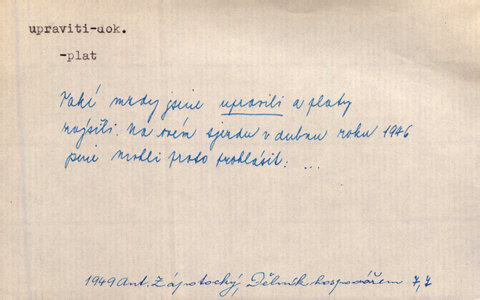 upraviti-dok.
-plat
Také mzdy jsme upravili a platy
zvýšili. Na svém sjezdu v dubnu roku 1946
jsme mohli proto prohlásit: ...
1949 Ant. Zápotocký, Dělník hospodářem 7,7